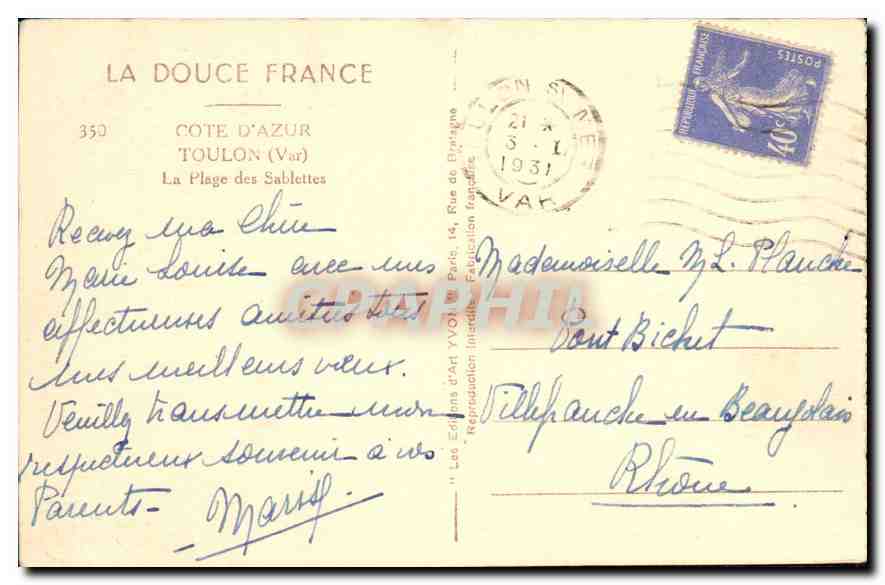 LA DOUCE FRANCE
350 COTE D'AZUR
TOULON (Var)
La Plage des Sablettes
Recevez ma Chère
Marie Louise avec mes
affectueuses amitiés tous
mes meilleurs vœux.
Veuillez transmettre mon
respectueux souvenir à vos
Parents-
" Les Editions d'Art YVON " Paris, 14, Rue de Bretagne
Reproduction Interdite. Fabrication française
21 *
3 - 1
1931
VAR
REPUBLIQUE FRANÇAISE
POSTES
40c
Mademoiselle M L. Planche
Pont Bichet
Villefranche en Beaujolais
Rhône
CPAPHIL